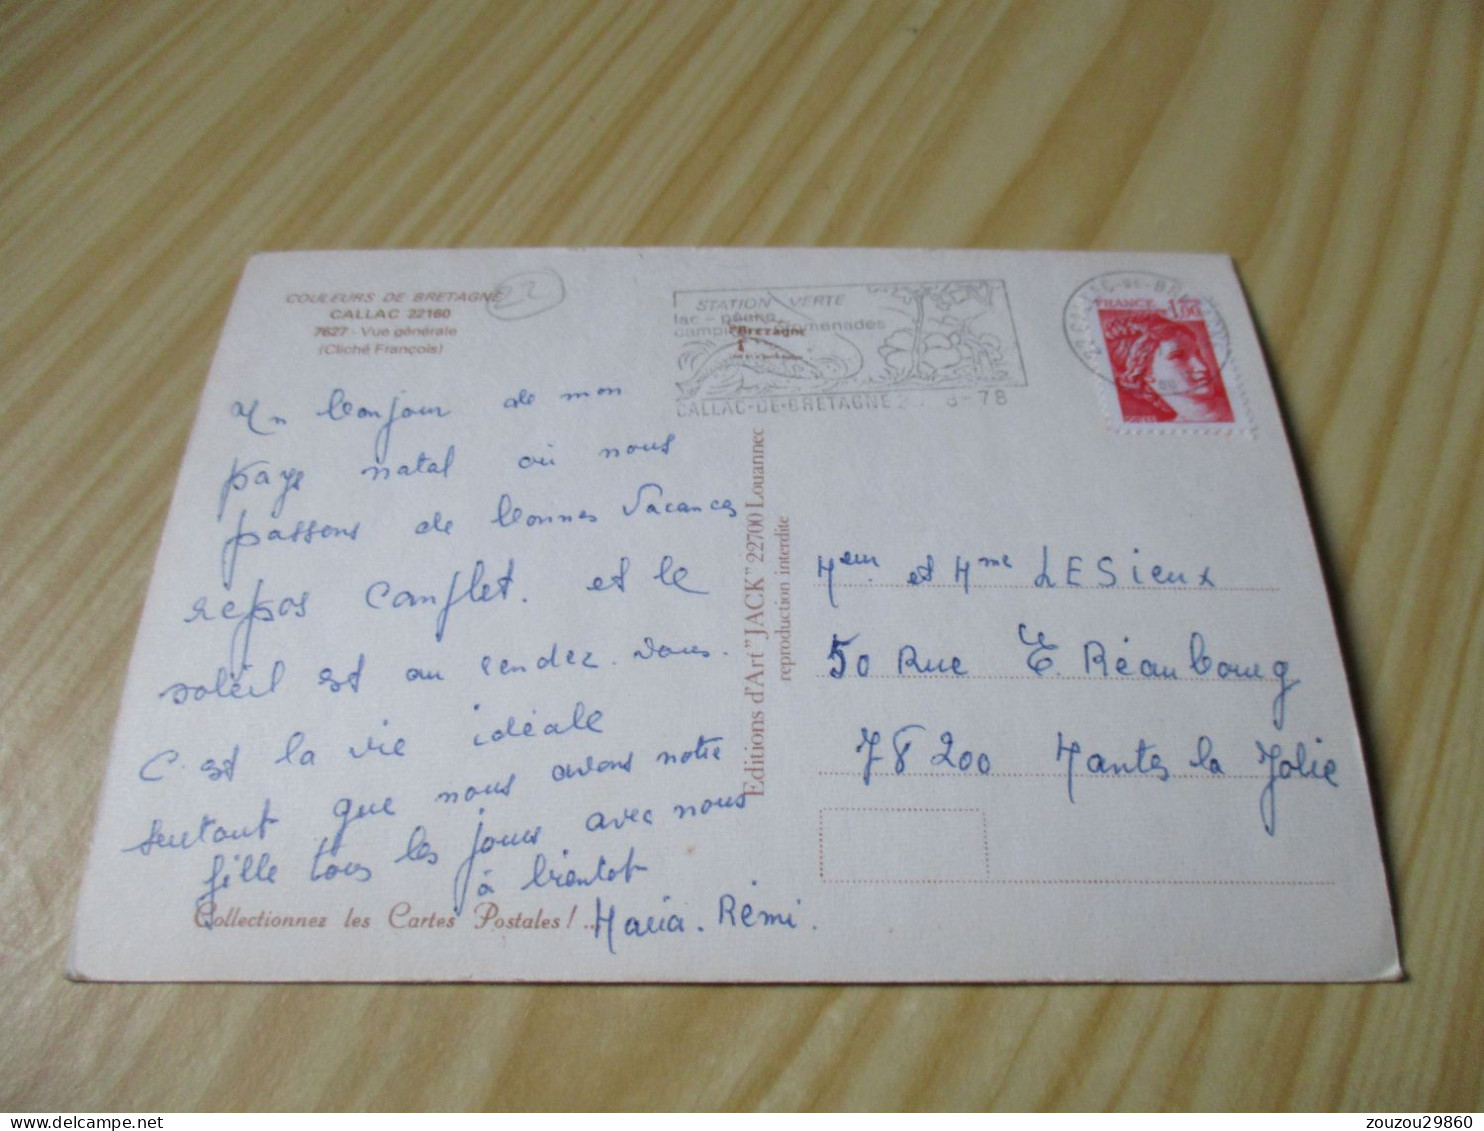 COULEURS DE BRETAGNE
CALLAC 22160
7627 - Vue générale
(Cliché François)
22
STATION VERTE
lac - pêche
camping promenades
Bretagne
CALLAC-DE-BRETAGNE 8-78
FRANCE 1,00
Un bonjour de mon
pays natal où nous
passons de bonnes vacances
repos complet. et le
soleil est au rendez-vous.
C'est la vie idéale
surtout que nous avons notre
fille tous les jours avec nous
à bientôt
Maria. Rémi.
Collectionnez les Cartes Postales!...
Editions d'Art "JACK" 22700 Louannec
reproduction interdite
Meur et Mme LESieux
50 Rue E. Réaubourg
78200 Mantes la Jolie
zouzou29860